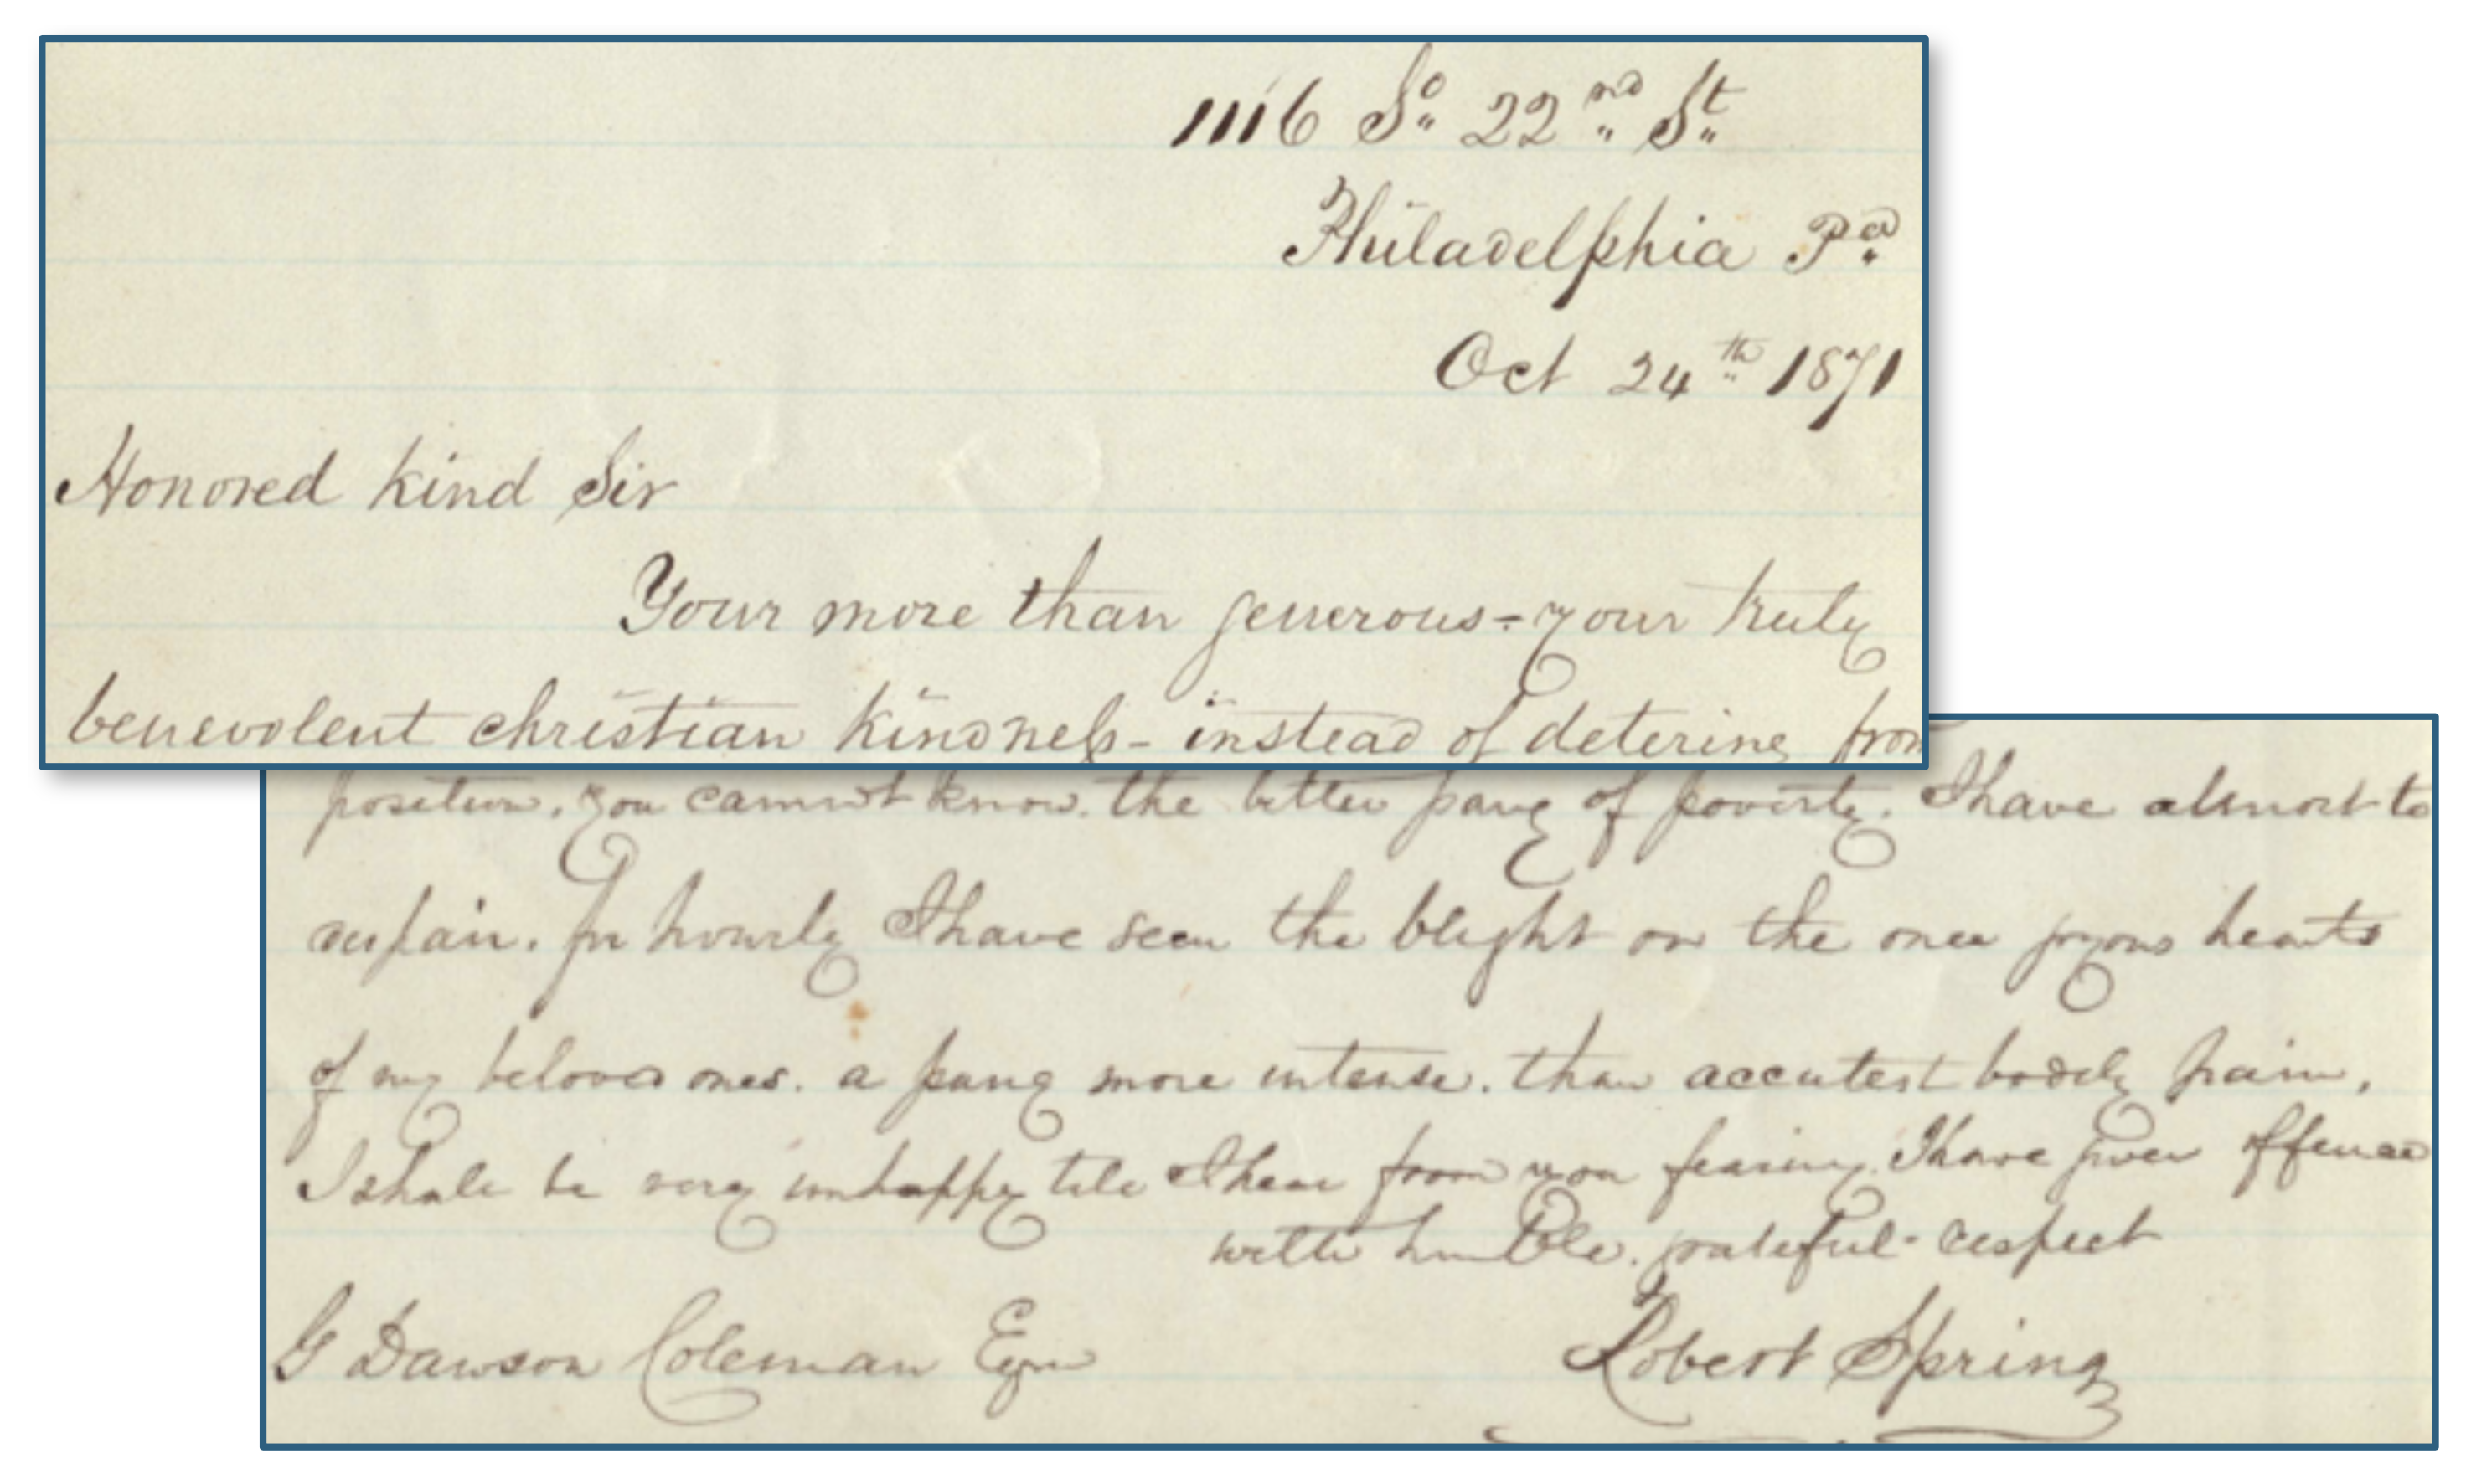 1116 So 22nd St
Philadelphia Pa
Oct 24th 1871
Honored kind Sir
Your more than generous - your truly
benevolent christian kindness - instead of detering from
position. you cannot know. the bitter pang of poverty. I have almost to
despair. for hourly I have seen the blight on the once joyous hearts
of my beloved ones. a pang more intense. than accutest bodily pain.
I shall be very unhappy till I hear from you fearing I have given offence
with humble. grateful - respect
G Dawson Coleman Esqr
Robert Spring